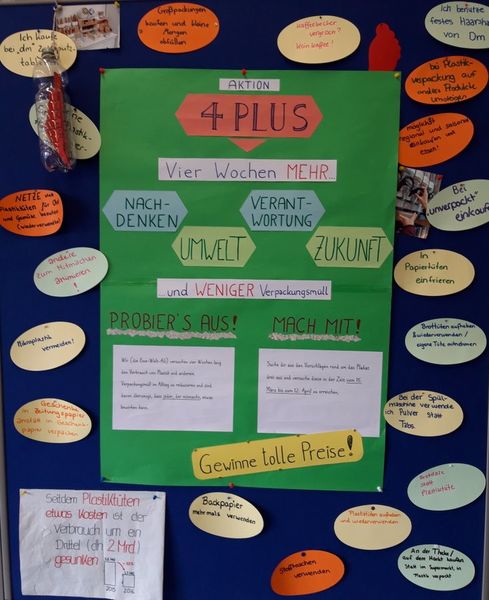 AKTION
4 PLUS
Vier Wochen MEHR...
NACH-
DENKEN
VERANT-
WORTUNG
UMWELT
ZUKUNFT
...und WENIGER Verpackungsmüll
PROBIER'S AUS!
MACH MIT!
Wir (die Eine-Welt-AG) versuchen vier Wochen lang
den Verbrauch von Plastik und anderem
Verpackungsmüll im Alltag zu reduzieren und sind
davon überzeugt, dass jeder, der mitmacht, etwas
bewirken kann.
Suche dir aus den Vorschlägen rund um das Plakat
Gewinne tolle Preise!
Ich kaufe
bei „dm"
Großpackungen
kaufen und kleine
Mengen
abfüllen
Kaffeebecher
vergessen?
Kein Kaffee!
Ich benutze
festes
von Dm
bei Plastik-
verpackung auf
andere Produkte
umsteigen
möglichst
regional und saisonal
einkaufen und
essen!
Bei
„unverpackt"
In
Papiertüten
einfrieren
Brottüten aufheben
& wiederverwenden /
eigene Tüte mitnehmen
Bei der Spül-
maschine verwende
ich Pulver statt
Tabs.
Brotdose
statt
Plastiktüte
An der Theke /
auf dem Markt kaufen
statt im Supermarkt in
Plastik verpackt
Plastiktüten aufheben
und wiederverwenden
Stofftaschen
verwenden
Backpapier
mehrmals verwenden
NETZE statt
Plastiktüten für Obst
und Gemüse benutzen
(wiederverwendbar)
andere
zum Mitmachen
animieren
!
Mikroplastik
vermeiden!
Geschenke
in Zeitungspapier
anstatt in Geschenk-
papier verpacken
Seitdem Plastiktüten
etwas kosten ist der
Verbrauch um ein
Drittel (dh 2 Mrd)
gesunken
2015
2016